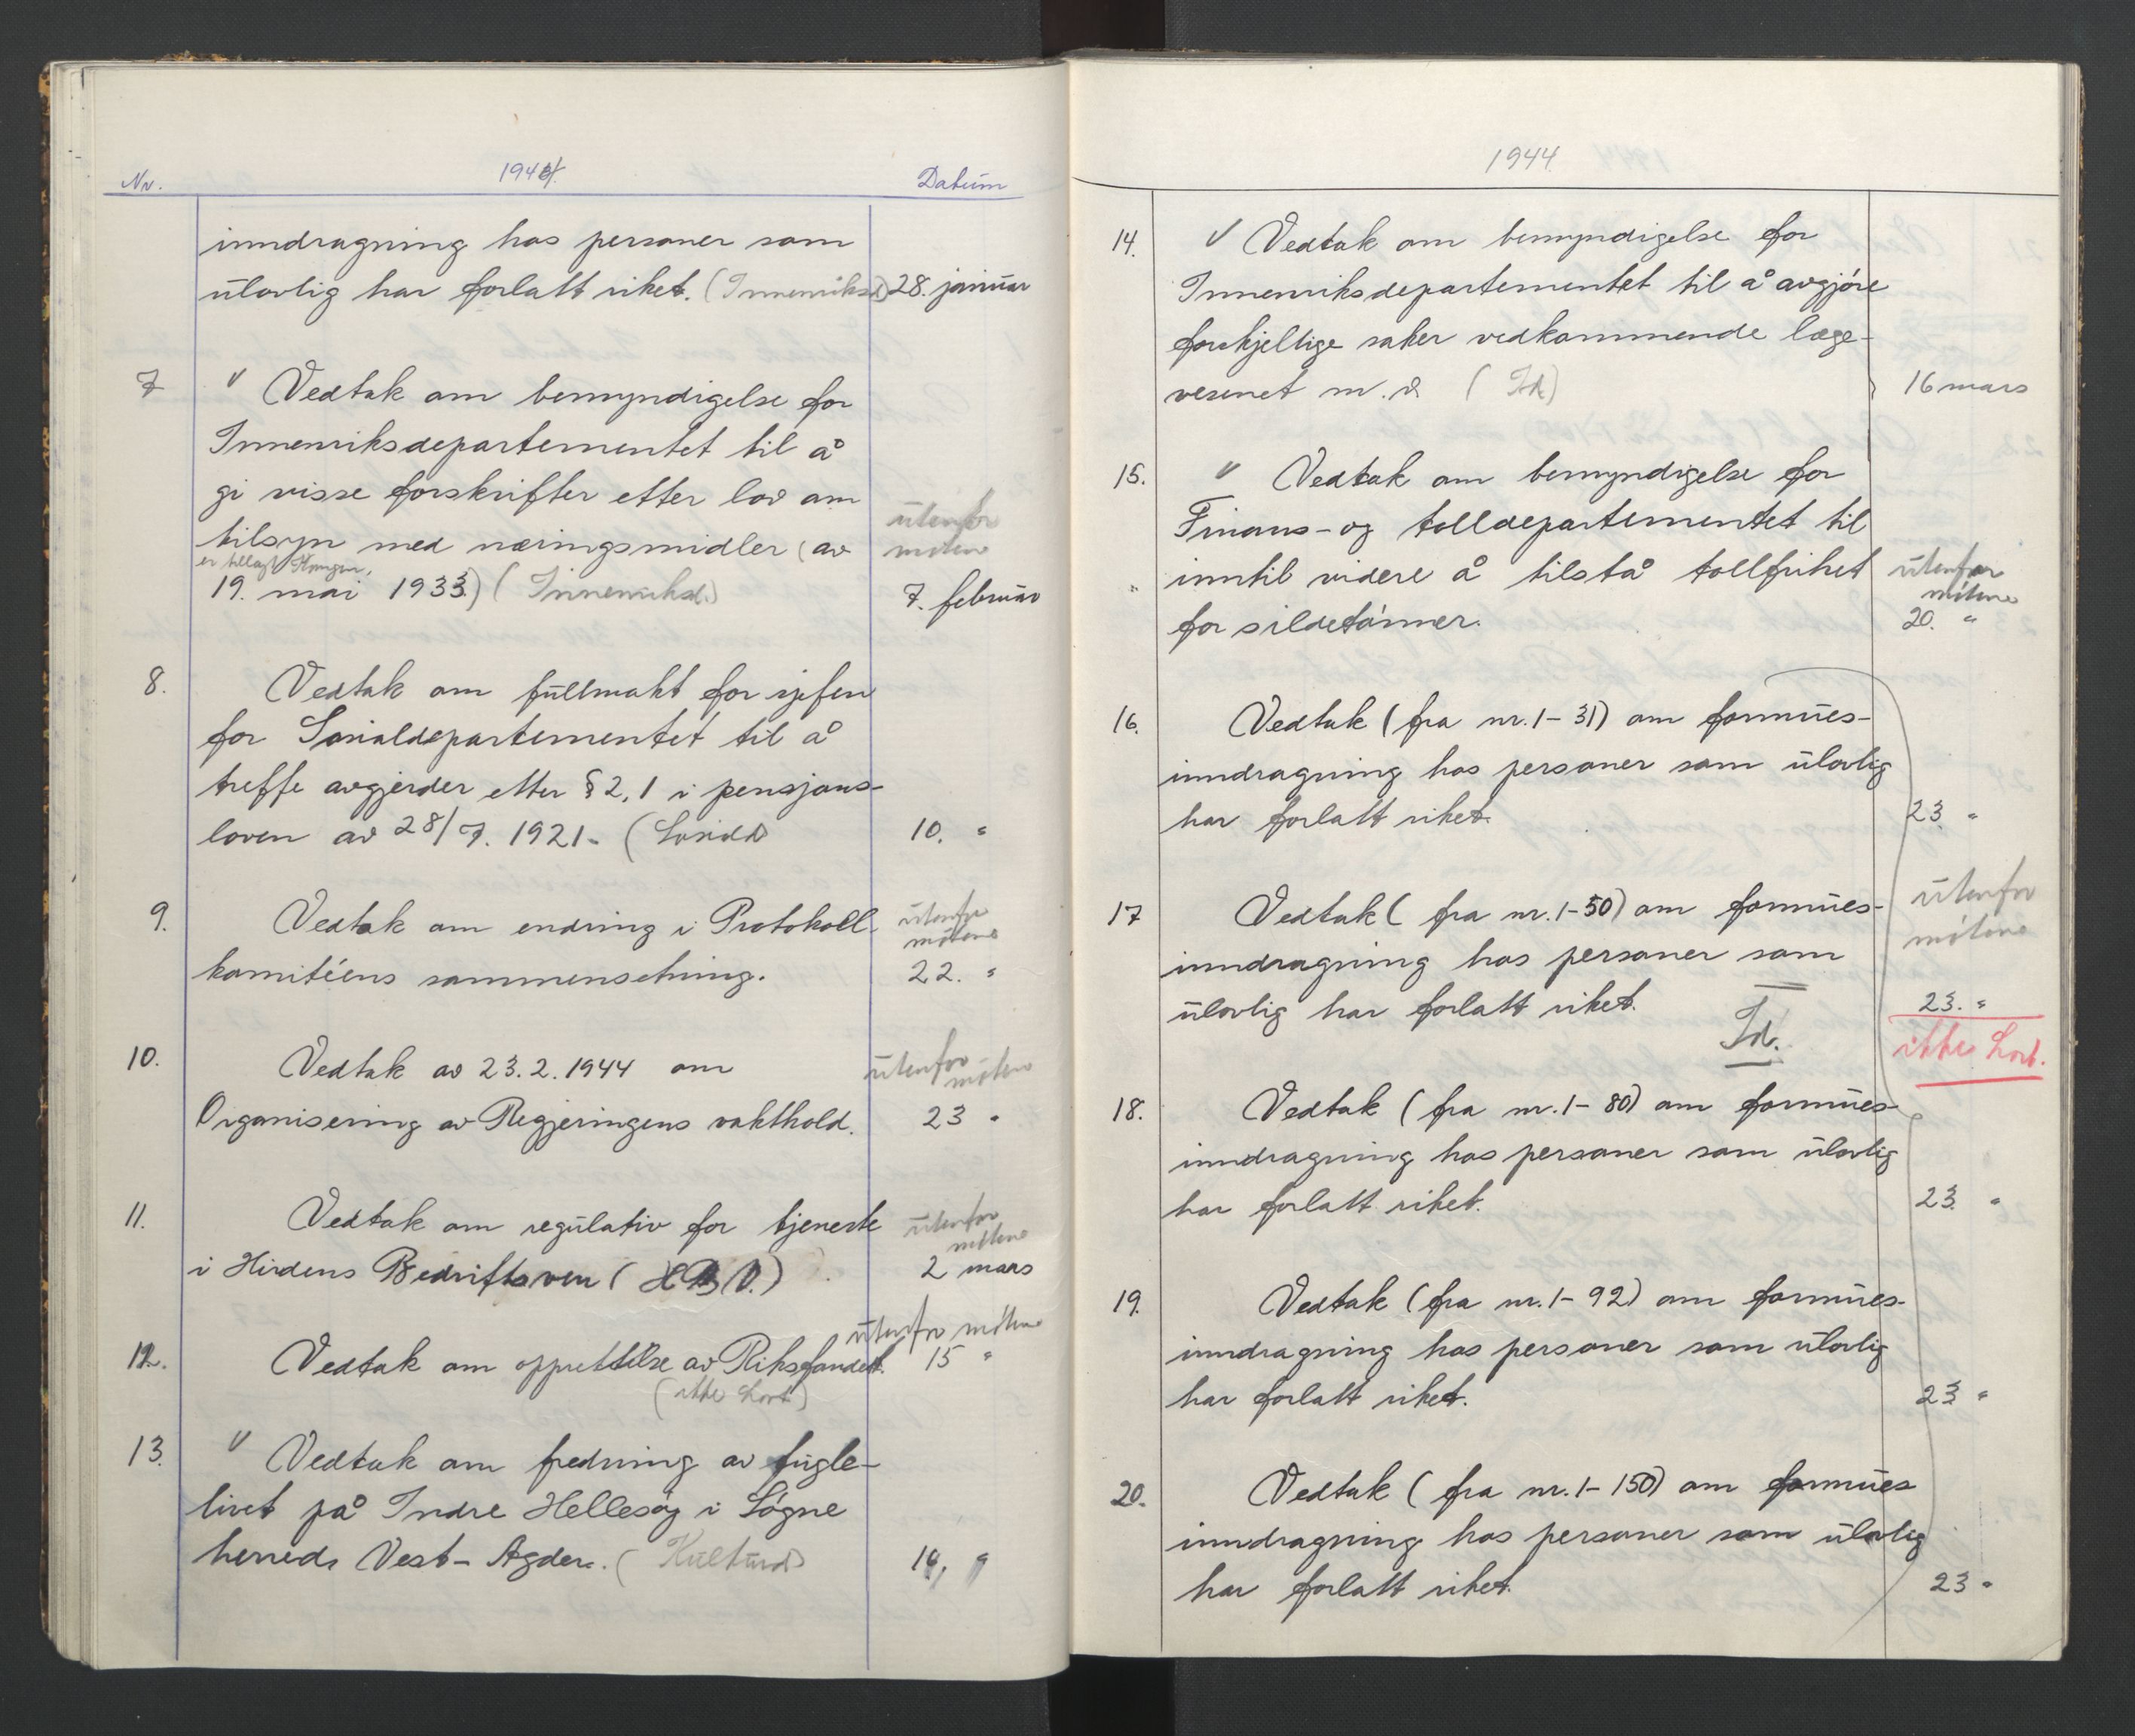 Nr. 1944. Datum
inndragning hos personer som
ulovlig har forlatt riket. (Innenriksd) 28. januar
7 V Vedtak om bemyndigelse for
Innenriksdepartementet til å
gi visse forskrifter etter lov om
utenfor
tilsyn med næringsmidler (av møtene
er tillagt Kongen,
19. mai 1933.) (Innenriksd.) 7. februar
8. Vedtak om fullmakt for sjefen
for Sosialdepartementet til å
treffe avgjerder etter § 2, 1 i pensjons-
loven av 28/7. 1921. (Sosiald) 10. "
9. Vedtak om endring i Protokoll- utenfor
møtene
komitéens sammensetning. 22. "
10. Vedtak av 23.2.1944 om utenfor møtene
Organisering av Regjeringens vakthold. 23 "
11. Vedtak om regulativ for tjeneste utenfor
møtene
i Hirdens Bedriftsvern (H.B.V.) 2 mars
utenfor møtene
12. Vedtak om opprettelse av Riksfondet. 15 "
(ikke Lovt)
13. V Vedtak om fredning av fugle-
livet på Indre Hellesøy i Søgne
herred, Vest-Agder. (Kulturd) "
1944
14. V Vedtak om bemyndigelse for
Innenriksdepartementet til å avgjøre
forskjellige saker vedkommende læge-
vesenet m.v. (Id) 16 mars
15. V Vedtak om bemyndigelse for
Finans- og tolldepartementet til
inntil videre å tilstå tollfrihet utenfor
møtene
for sildetønner. 20. "
16. Vedtak (fra nr. 1-31) om formues-
inndragning hos personer som ulovlig
har forlatt riket. 23 "
17 Vedtak (fra nr. 1-50) om formues- utenfor
inndragning hos personer som møtene
ulovlig har forlatt riket. 23. "
Id. ikke Lovt.
18. Vedtak (fra nr. 1-80) om formues-
inndragning hos personer som ulovlig
har forlatt riket. 23 "
19. Vedtak (fra nr. 1-92) om formues-
inndragning hos personer som ulovlig
har forlatt riket. 23 "
20. Vedtak (fra nr. 1-150) om formues
inndragning hos personer som ulovlig
har forlatt riket. 23 "